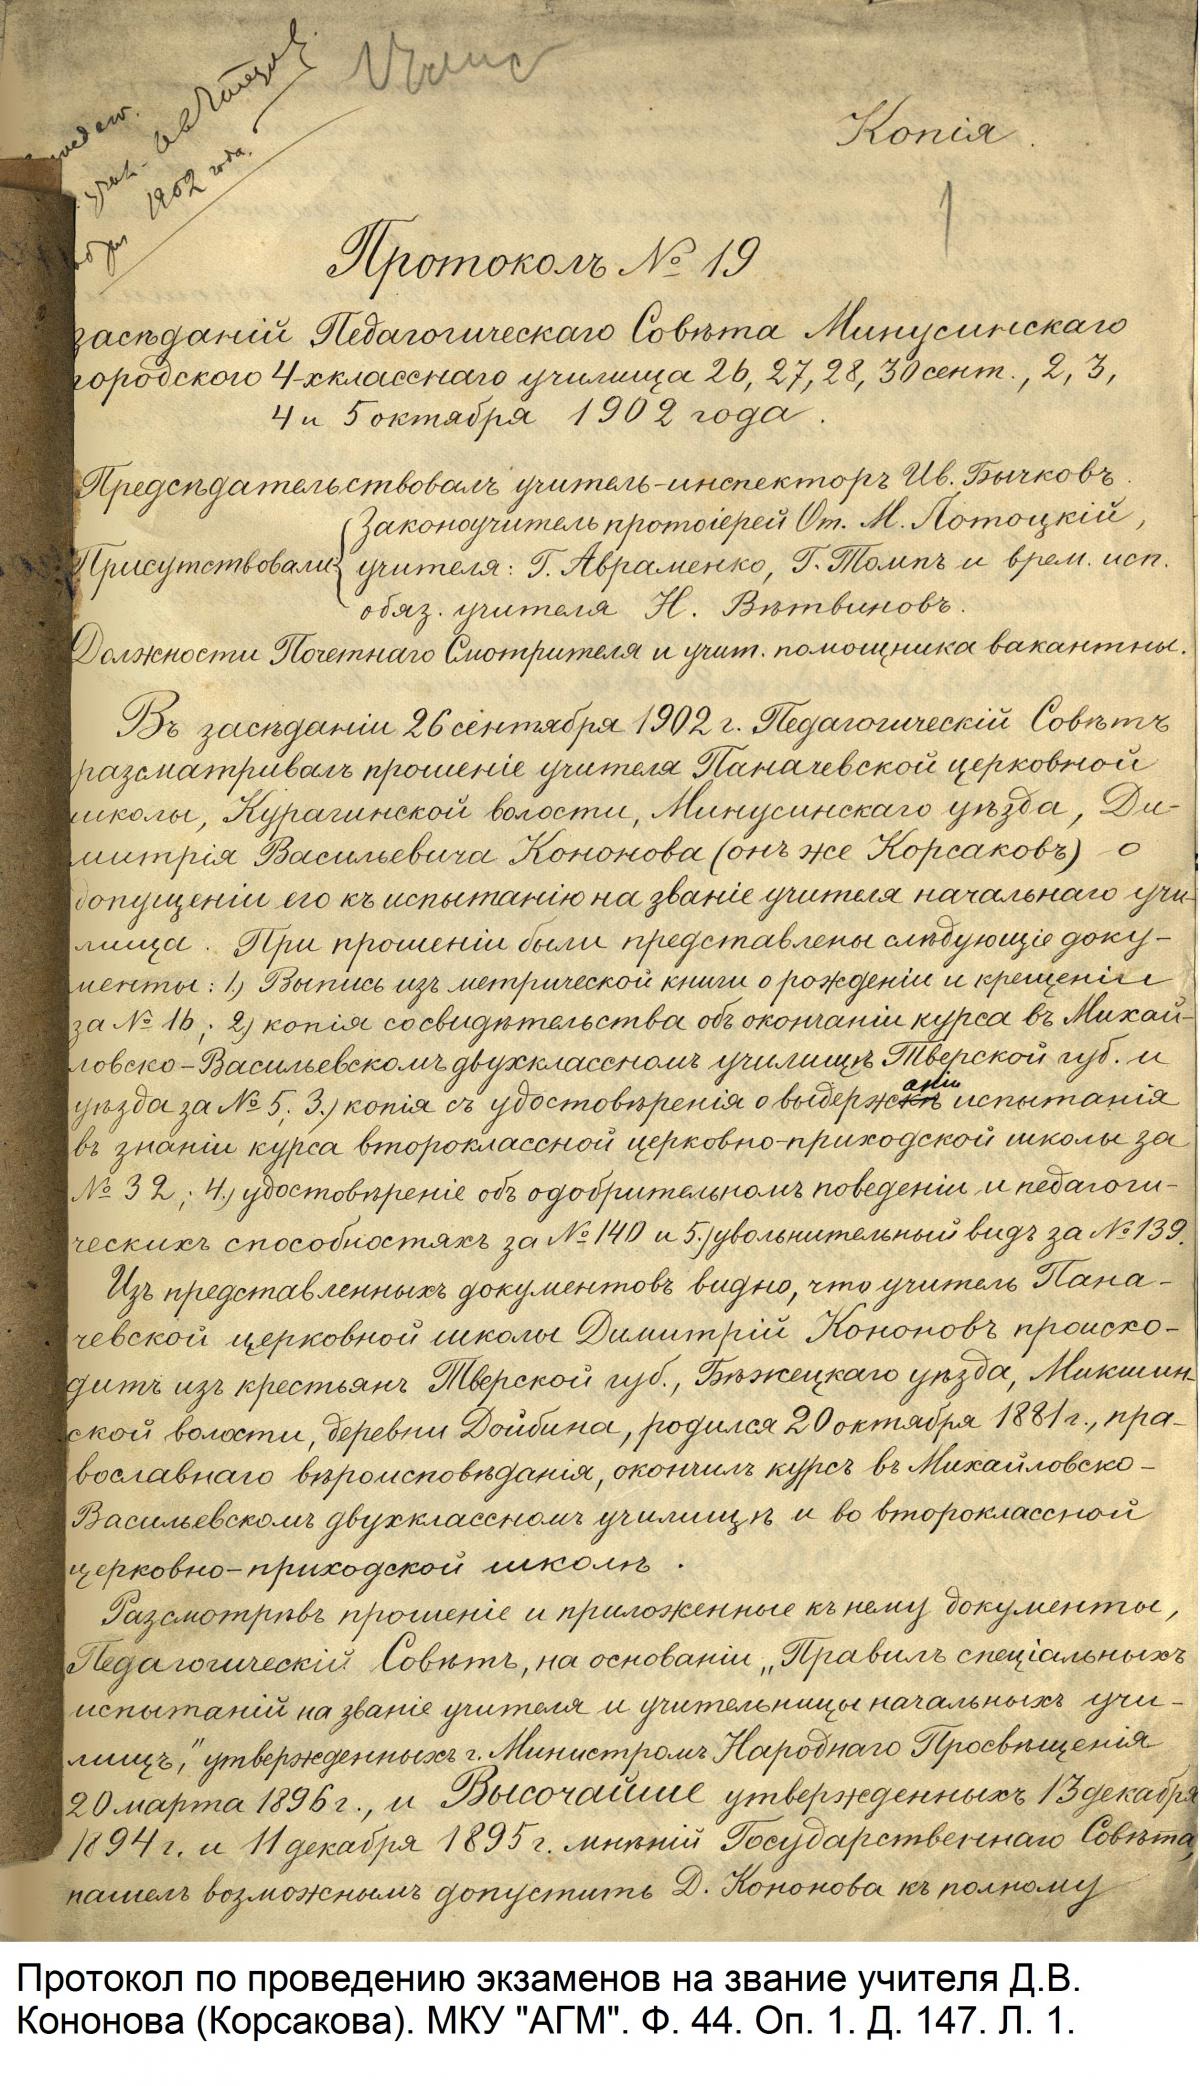 1902 года.
Копія.
1
Протоколъ № 19
засѣданій Педагогическаго Совѣта Минусинскаго
городского 4-хкласснаго училища 26, 27, 28, 30 сент., 2, 3,
4 и 5 октября 1902 года.
Предсѣдательствовалъ учитель-инспекторъ Ив. Бычковъ.
Законоучитель протоіерей От. М. Потоцкій,
Присутствовали учителя: Г. Авраменко, Г. Томпъ и врем. исп.
обяз. учителя Н. Вѣтвиновъ.
Должности Почетнаго Смотрителя и учит. помощника вакантны.
Въ засѣданіи 26 сентября 1902 г. Педагогическій Совѣтъ
разсматривалъ прошеніе учителя Паначевской церковной
школы, Курагинской волости, Минусинскаго уѣзда, Ди-
митрія Васильевича Кононова (онъ же Корсаковъ) о
допущеніи его къ испытанію на званіе учителя начальнаго учи-
лища. При прошеніи были представлены слѣдующіе доку-
менты: 1.) Выпись изъ метрической книги о рожденіи и крещеніи
за № 16; 2) копія со свидѣтельства объ окончаніи курса въ Михай-
ловско-Васильевскомъ двухклассномъ училищѣ Тверской губ. и
уѣзда за № 5; 3.) копія съ удостовѣренія о выдержаніи испытанія
въ знаніи курса второклассной церковно-приходской школы за
№ 32; 4.) удостовѣреніе объ одобрительномъ поведеніи и педагоги-
ческихъ способностяхъ за № 140 и 5.) увольнительный видъ за № 139.
Изъ представленныхъ документовъ видно, что учитель Пана-
чевской церковной школы Димитрій Кононовъ происхо-
дитъ изъ крестьянъ Тверской губ., Бѣжецкаго уѣзда, Микшин-
ской волости, деревни Дойбина, родился 20 октября 1881 г., пра-
вославнаго вѣроисповѣданія, окончилъ курсъ въ Михайловско-
Васильевскомъ двухклассномъ училищѣ и во второклассной
церковно-приходской школѣ.
Разсмотрѣвъ прошеніе и приложенные къ нему документы,
Педагогическій Совѣтъ, на основаніи „Правилъ спеціальныхъ
испытаній на званіе учителя и учительницы начальныхъ учи-
лищъ," утвержденныхъ г. Министромъ Народнаго Просвѣщенія
20 марта 1896 г., и Высочайше утвержденныхъ 13 декабря
1894 г. и 11 декабря 1895 г. мнѣній Государственнаго Совѣта,
нашелъ возможнымъ допустить Д. Кононова къ полному
Протокол по проведению экзаменов на звание учителя Д.В.
Кононова (Корсакова). МКУ "АГМ". Ф. 44. Оп. 1. Д. 147. Л. 1.